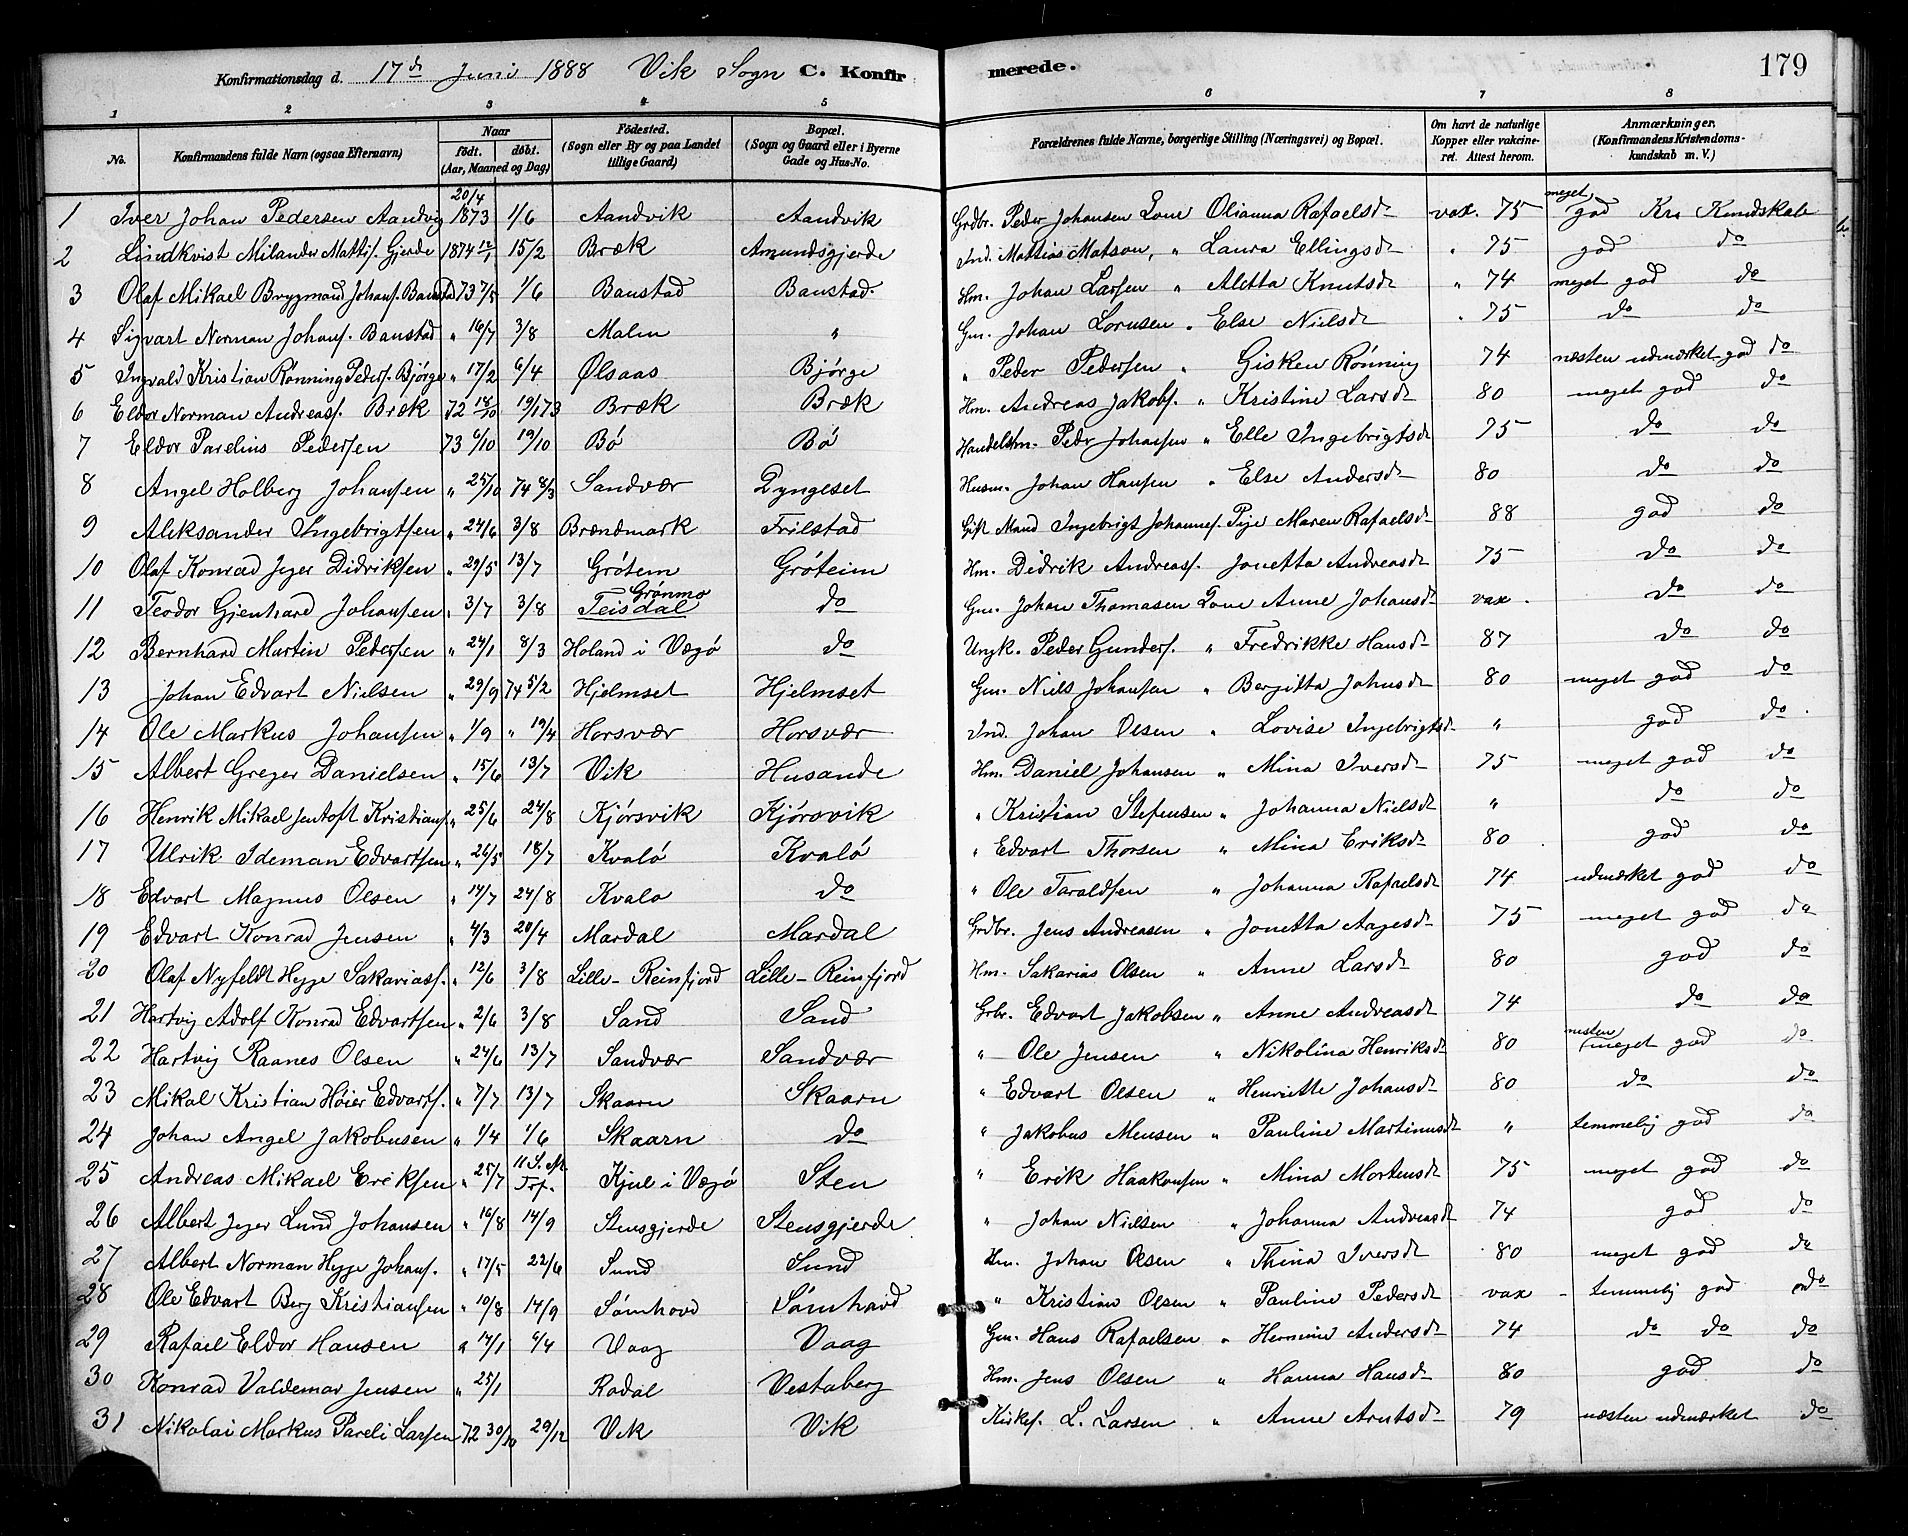 Konfirmationsdag d. 17de Juni 1888 Vik Sogn C. Konfirmerede. 179
1 2 3 4 5 6 7 8
No. Konfirmandens fulde Navn (ogsaa Efternavn) Naar født. døbt. (Aar, Maaned og Dag) Fødested. (Sogn eller By og paa Landet tillige Gaard) Bopæl. (Sogn og Gaard eller i Byerne Gade og Hus-No. Forældrenes fulde Navne, borgerlige Stilling (Næringsvei) og Bopæl. Om havt de naturlige Kopper eller vakcineret. Attest herom. Anmærkninger, (Konfirmandens Kristendomskundskab m. V.)
1 Iver Johan Pedersen Aandvig 20/4 1873 1/6 Aandvik Aandvik Grdbr. Peder Johansen Kone Olianna Rafaelsdt vax. 75 meget god Kr. Kundskab
2 Lindkvist Milander Mattisf. Gjerde 1874 12/1 15/2 Bræk Amundsgjerde Ind. Mattias Matson, " Laura Ellingsdt " 75 god do
3 Olaf Mikael Brygmand Johansf. Baustad 73 7/5 1/6 Baustad Baustad. Hm. Johan Larsen " Aletta Knutsdt " 74 meget god do
4 Sigvart Norman Johansf. Baustad " 16/7 3/8 Malm " Gm. Johan Lornsen " Else Nielsdt " 75 do do
5 Ingvald Kristian Rønning Pedersf. Bjørge " 17/2 6/4 Ølsaas Bjørge " Peder Pedersen " Gisken Rønning 74 næsten udmærket god do
6 Eldor Norman Andreasf. Bræk 72 18/10 19/1 73 Bræk Bræk Hm. Andreas Jakobf. " Kristine Larsdt 80 meget god do
7 Eldor Parelius Pedersen 73 6/10 19/10 Bø Bø Handelsm. Pedr Johansen " Elle Ingebrigtsdt 75 do do
8 Angel Holberg Johansen " 25/10 74 8/3 Sandvær Dyngeset Husm. Johan Hansen " Else Andersdt 80 do do
9 Aleksander Ingebrigtsen " 24/6 3/8 Brændmark Frilstad Gift Mand Ingebrigt Johannesf. Pige Maren Rafaelsdt 88 god do
10 Olaf Konrad Jeger Didriksen " 29/5 13/7 Grøtem Grøteim Hm. Didrik Andreasf. Jonetta Andreasdt 75 do do
11 Teodor Gjenhard Johansen " 3/7 3/8 Grønmo Teisdal do Gm. Johan Thomasen Kone Anne Johansdt vax. do do
12 Bernhard Martin Pedersen " 24/1 8/3 Holand i Vegø do Ungk. Peder Gundersf. " Fredrikke Hansdt 87 do do
13 Johan Edvart Nielsen " 29/9 74 5/2 Hjelmset Hjelmset Gm. Niels Johansen " Bergitta Johnsdt 80 meget god do
14 Ole Markus Johansen " 1/9 " 19/4 Horsvær Horsvær Ind. Johan Olsen " Lovise Ingebrigtsdt " god do.
15 Albert Greger Danielsen " 15/6 13/7 Vik Husande Hm. Daniel Johansen " Mina Iversdt 75 meget god do
16 Henrik Mikael Jentoft Kristiansf. " 25/6 24/8 Kjørsvik Kjørsvik " Kristian Stefensen " Johanna Nielsdt " do do
17 Ulrik Ideman Edvartsen " 26/5 18/7 Kvalø Kvalø " Edvart Thorsen " Mina Eriksdt 80 god do
18 Edvart Magnus Olsen " 14/7 24/8 Kvalø do " Ole Taraldsen " Johanna Rafaelsdt 74 udmærket god do
19 Edvart Konrad Jensen " 4/3 20/4 Mardal Mardal Grdbr. Jens Andreasen " Jonetta Aagesdt 75 meget god do
20 Olaf Nyfeldt Hegge Sakariasf. " 12/6 3/8 Lille-Reinfjord Lille-Reinfjord Hm. Sakarias Olsen " Anne Larsdt 80 god do
21 Hartvig Adolf Konrad Edvartsen " 2/6 3/8 Sand Sand Grbr. Edvart Jakobsen " Anne Andreasdt 74 do do
22 Hartvig Raanes Olsen " 24/6 13/7 Sandvær Sandvær " Ole Jensen " Nikolina Henriksdt 80 næsten meget god do
23 Mikal Kristian Høier Edvartsf. " 7/7 13/7 Skaarn Skaarn " Edvart Olsen " Henriette Johansdt 80 do do
24 Johan Angel Jakobusen " 1/4 1/6 Skaarn do " Jakobus Mensen " Pauline Martinusdt " temmelig god do
25 Andreas Mikael Eriksen " 25/7 11 S. M. Trf. Kjul i Vegø Sten " Erik Haakonsen " Mina Mortensdt 75 meget god do
26 Albert Jeger Lund Johansen " 16/8 14/9 Stensgjerde Stensgjerde " Johan Nielsen " Johanna Andreasdt 74 god do
27 Albert Norman Hegge Johansf. " 17/5 22/6 Sund Sund Hm. Johan Olsen " Thina Iversdt 80 meget god do
28 Ole Edvart Berg Kristiansen " 10/8 14/9 Sømhovd Sømhovd " Kristian Olsen " Pauline Pedersdt vax temmelig god do
29 Rafael Eldor Hansen " 14/1 4/4 Vaag Vaag Gm. Hans Rafaelsen " Hermine Andersdt 74 do do do
30 Konrad Valdemar Jensen " 25/1 Rodal Vestaberg Hm. Jens Olsen " Hanna Hansdt 80 god do
31 Nikolai Markus Pareli Larsen 72 30/10 29/12 Vik Vik Kirkes. L. Larsen " Anne Arntsdt 79 næsten udmærket do